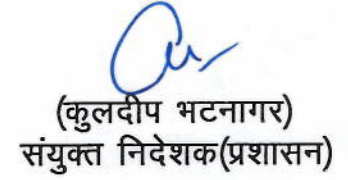 (कुलदीप भटनागर)
संयुक्त निदेशक(प्रशासन)